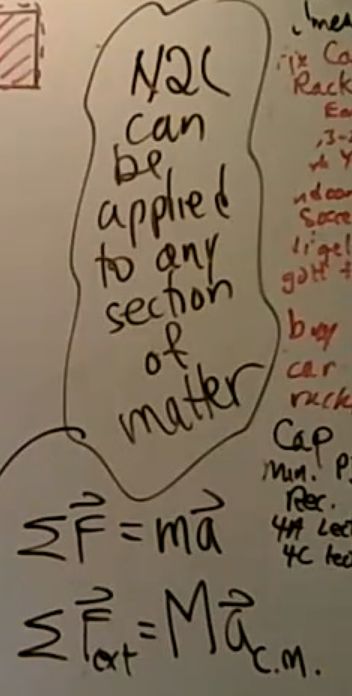 N2L
can
be
applied
to any
section
of
matter
ΣF⃗ = ma⃗
ΣF⃗ext = Ma⃗c.m.
Rack
buy
car
rack
Cap
Min.
Rec.
4A Lec
4C lec